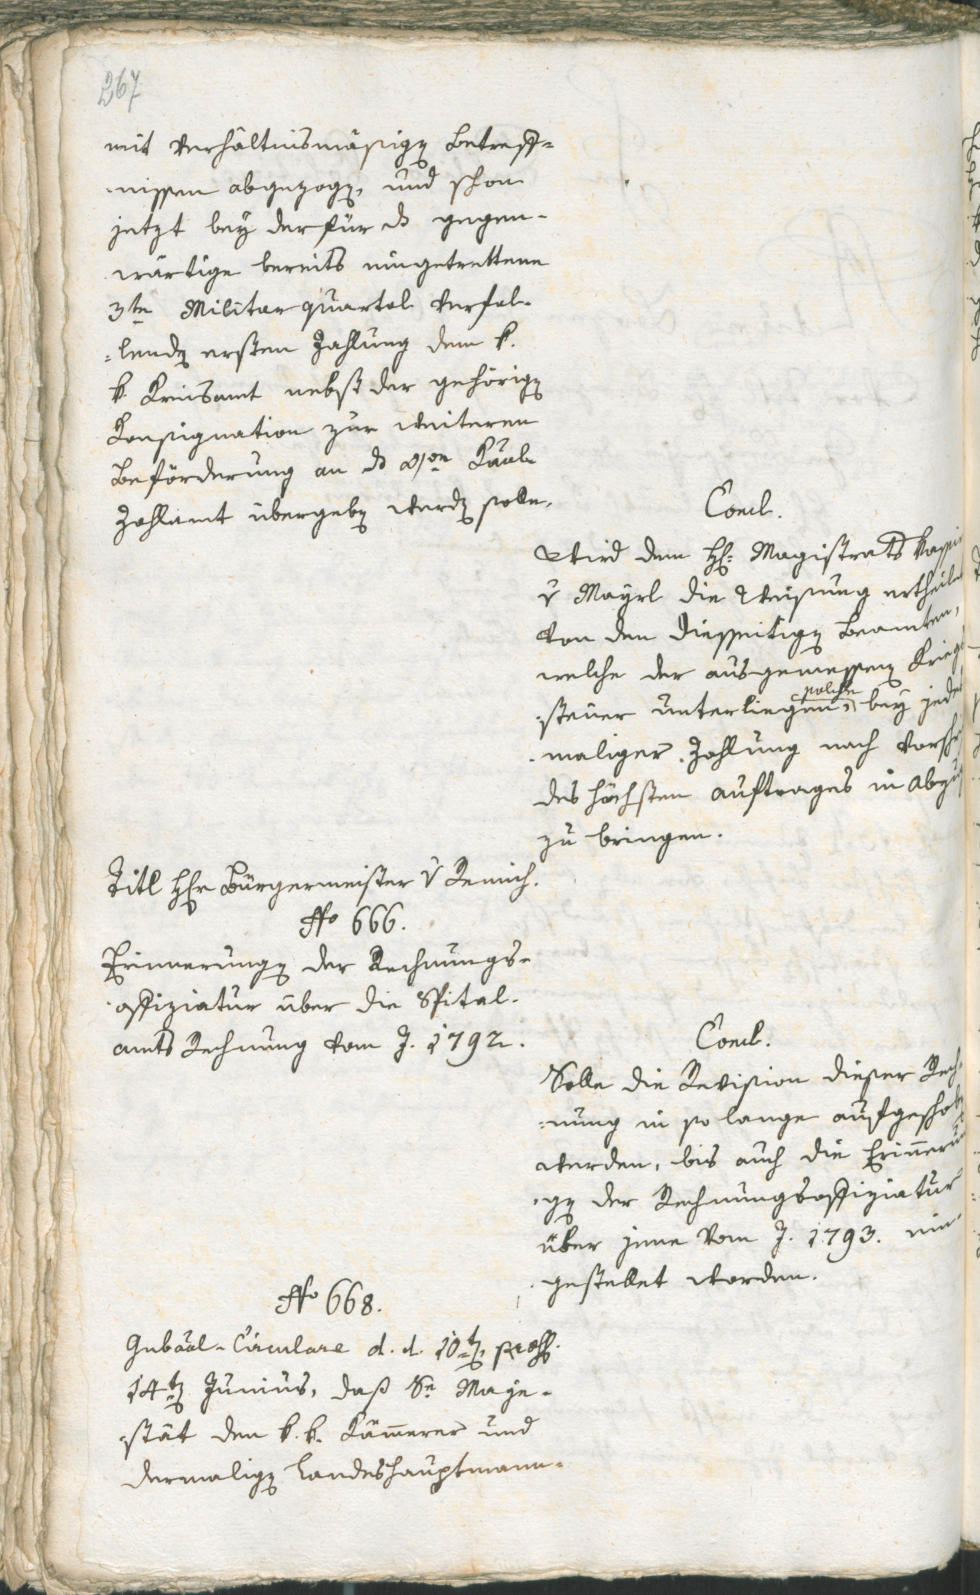 267
mit verhältnismäsigen Betreff-
nissen abgezogen, und schon
jetzt bey der für das gegen-
wärtige bereits eingetrettene
3te Militar quartal verfal-
lenden ersten Zahlung dem k.
k. Kreisamt nebst der gehörigen
Consignation zur weiteren
Beförderung an das Kaal
Zahlamt übergeben werden solle.
Concl.
Wird dem HH: Magistrats Kassier
v Mayrl die Weisung ertheilet
von den diesseitigen Beamten,
welche der ausgemessenen Kriegs
steuer unterliegen, solche bey jedes
maliger Zahlung nach Vorschr
des höchsten auftrages in Abzug
zu bringen.
Titl Hr Bürgermeister v Remich.
No 666.
Erinnerungen der Rechnungs-
offiziatur über die Spital-
amts Rechnung vom J. 1792.
Concl.
Solle die Revision dieser Rech-
nung in so lange aufgeschoben
werden, bis auch die Erinneru
gen der Rechnungsoffiziatur
über jene vom J. 1793. ein-
gestellet worden.
No 668.
Gubaal-Circulare d. d. 10ten
14ten Junius, daß Se Maje-
stät den k. k. Kämerer und
dermaligen Landeshauptmann-